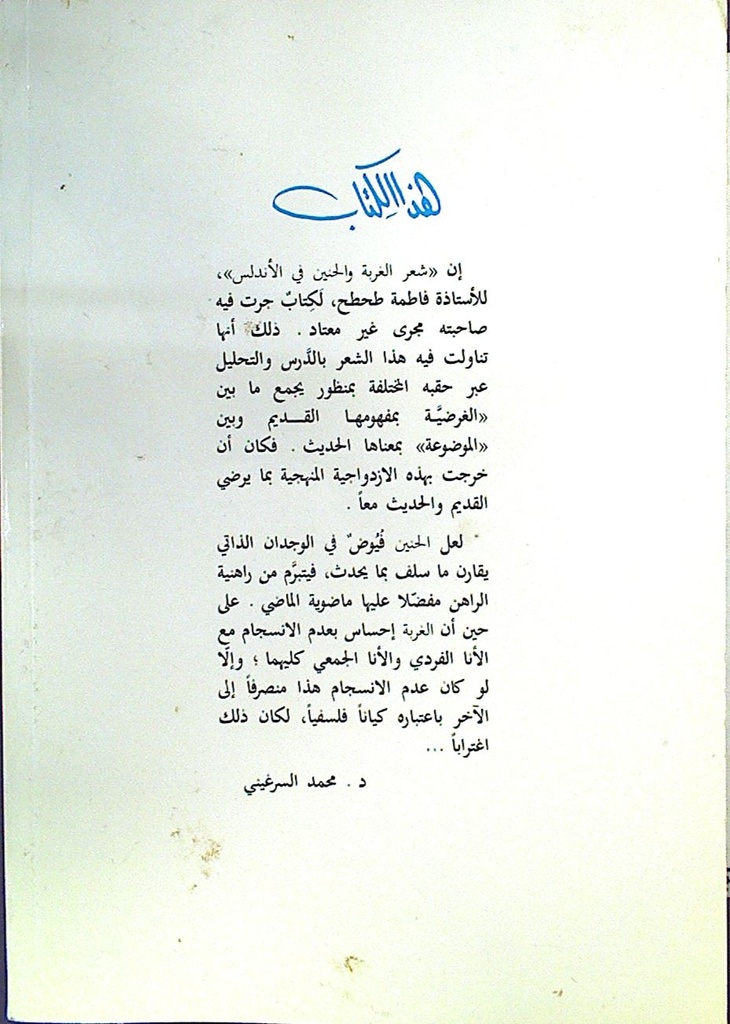 هذا الكتاب
إن «شعر الغربة والحنين في الأندلس»،
للأستاذة فاطمة طحطح، لَكِتابٌ جرت فيه
صاحبته مجرى غير معتاد . ذلك أنها
تناولت فيه هذا الشعر بالدَّرس والتحليل
عبر حقبه المختلفة بمنظور يجمع ما بين
«الغرضيَّة بمفهومها القديم وبين
«الموضوعة» بمعناها الحديث . فكان أن
خرجت بهذه الازدواجية المنهجية بما يرضي
القديم والحديث معاً .
لعل الحنين فُيُوضٌ في الوجدان الذاتي
يقارن ما سلف بما يحدث، فيتبرَّم من راهنية
الراهن مفضّلا عليها ماضوية الماضي . على
حين أن الغربة إحساس بعدم الانسجام مع
الأنا الفردي والأنا الجمعي كليهما ؛ وإلَّا
لو كان عدم الانسجام هذا منصرفاً إلى
الآخر باعتباره كياناً فلسفياً، لكان ذلك
اغتراباً ...
د . محمد السرغيني